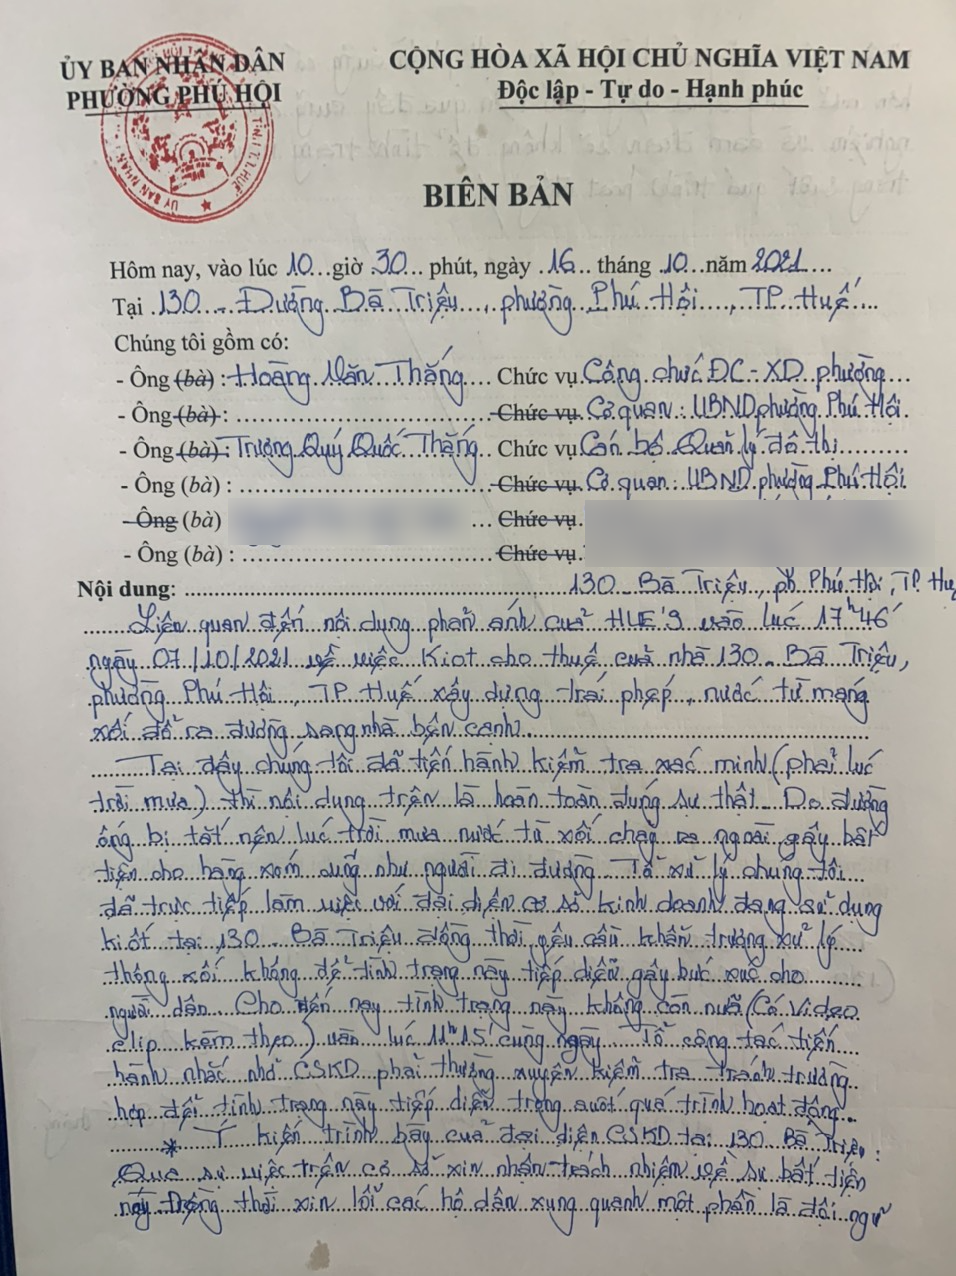 ỦY BAN NHÂN DÂN
PHƯỜNG PHÚ HỘI
CỘNG HÒA XÃ HỘI CHỦ NGHĨA VIỆT NAM
Độc lập - Tự do - Hạnh phúc
BIÊN BẢN
Hôm nay, vào lúc 10 giờ 30 phút, ngày 16 tháng 10 năm 2021
Tại 130 Đường Bà Triệu, phường Phú Hội, TP Huế
Chúng tôi gồm có:
- Ông (bà) : Hoàng Văn Thắng Chức vụ Công chức ĐC-XD phường
- Ông (bà): Chức vụ Cơ quan: UBND phường Phú Hội
- Ông (bà): Trương Quý Quốc Thắng Chức vụ Cán bộ Quản lý đô thị
- Ông (bà) : Chức vụ Cơ quan: UBND phường Phú Hội
- Ông (bà) Chức vụ
- Ông (bà) : Chức vụ
Nội dung: 130 Bà Triệu, ph Phú Hội, TP Hu
Liên quan đến nội dung phản ánh của HUE'S vào lúc 17h46'
ngày 07/10/2021 về việc Kiot cho thuê của nhà 130 Bà Triệu,
phường Phú Hội, TP Huế xây dựng trái phép, nước từ máng
xối đổ ra đường sang nhà bên cạnh.
Tại đây chúng tôi đã tiến hành kiểm tra xác minh (phải lúc
trời mưa) thì nội dung trên là hoàn toàn đúng sự thật. Do đường
ống bị tắt nên lúc trời mưa nước từ xối chảy ra ngoài gây bất
tiện cho hàng xóm cũng như người đi đường. Tổ xử lý chúng tôi
đã trực tiếp làm việc với đại diện cơ sở kinh doanh đang sử dụng
kiốt tại 130 Bà Triệu đồng thời yêu cầu khẩn trương xử lý
thông xối không để tình trạng này tiếp diễn gây bức xúc cho
người dân. Cho đến nay tình trạng này không còn nữa (Có Video
clip kèm theo) vào lúc 11h15' cùng ngày. Tổ công tác tiến
hành nhắc nhở CSKD phải thường xuyên kiểm tra tránh trường
hợp để tình trạng này tiếp diễn trong suốt quá trình hoạt động.
* Ý kiến trình bày của đại diện CSKD tại 130 Bà Triệu:
Qua sự việc trên cơ sở xin nhận trách nhiệm về sự bất tiện
này đồng thời xin lỗi các hộ dân xung quanh một phần là đội ngũ